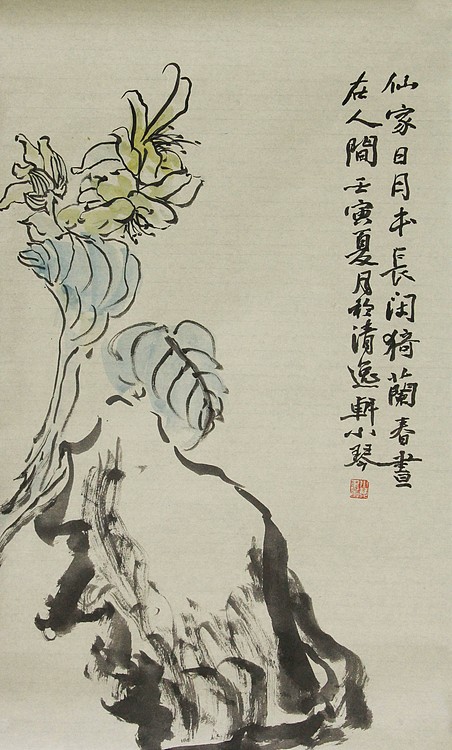 仙家日月本長闲猗蘭春晝
在人間壬寅夏月於清逸軒小琴